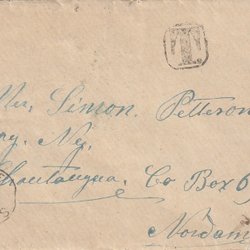 T
Mr. Simon. Petterson
Ny.
Chautauqua, Co Box 6
Nordam